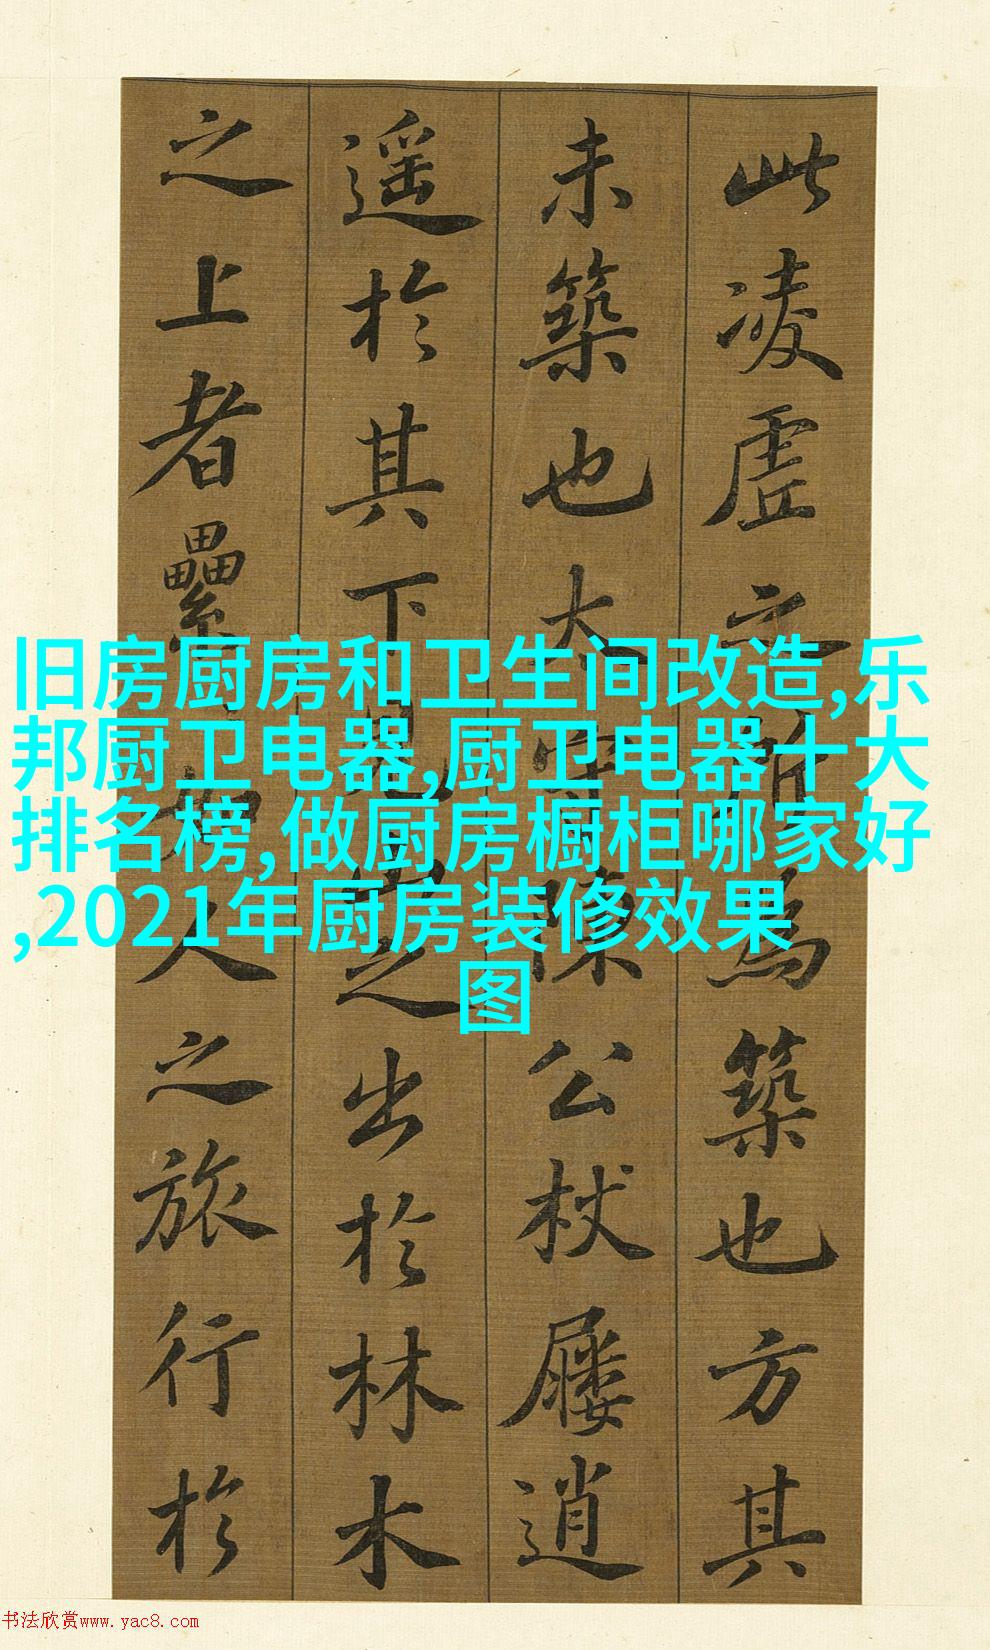 此凌虛之所為築也方其
未築也大守陳公杖屨逍
遥於其下見山之出於林木
之上者纍如人之旅行於
旧房厨房和卫生间改造,乐
邦厨卫电器,厨卫电器十大
排名榜,做厨房橱柜哪家好
,2021年厨房装修效果
图
书法欣赏www.yac8.com